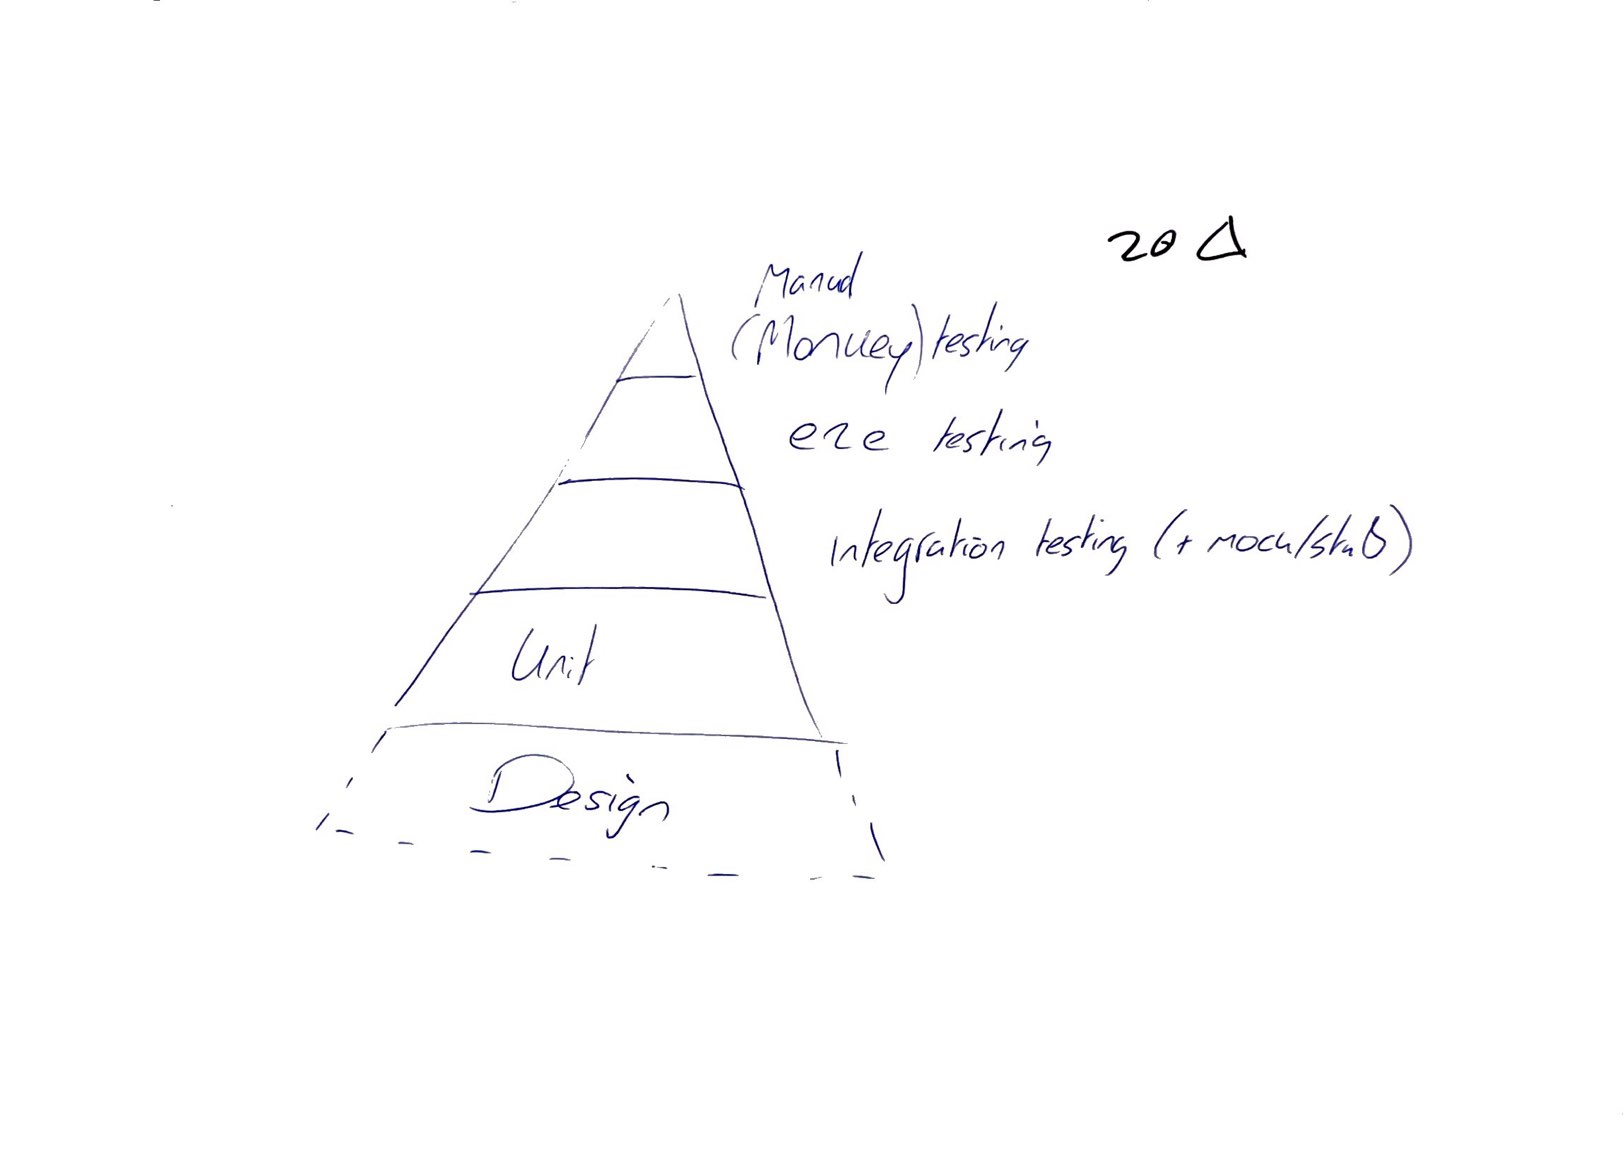 20 Δ
Manual
(Monkey) testing
e2e testing
integration testing (+ mock/stub)
Unit
Design